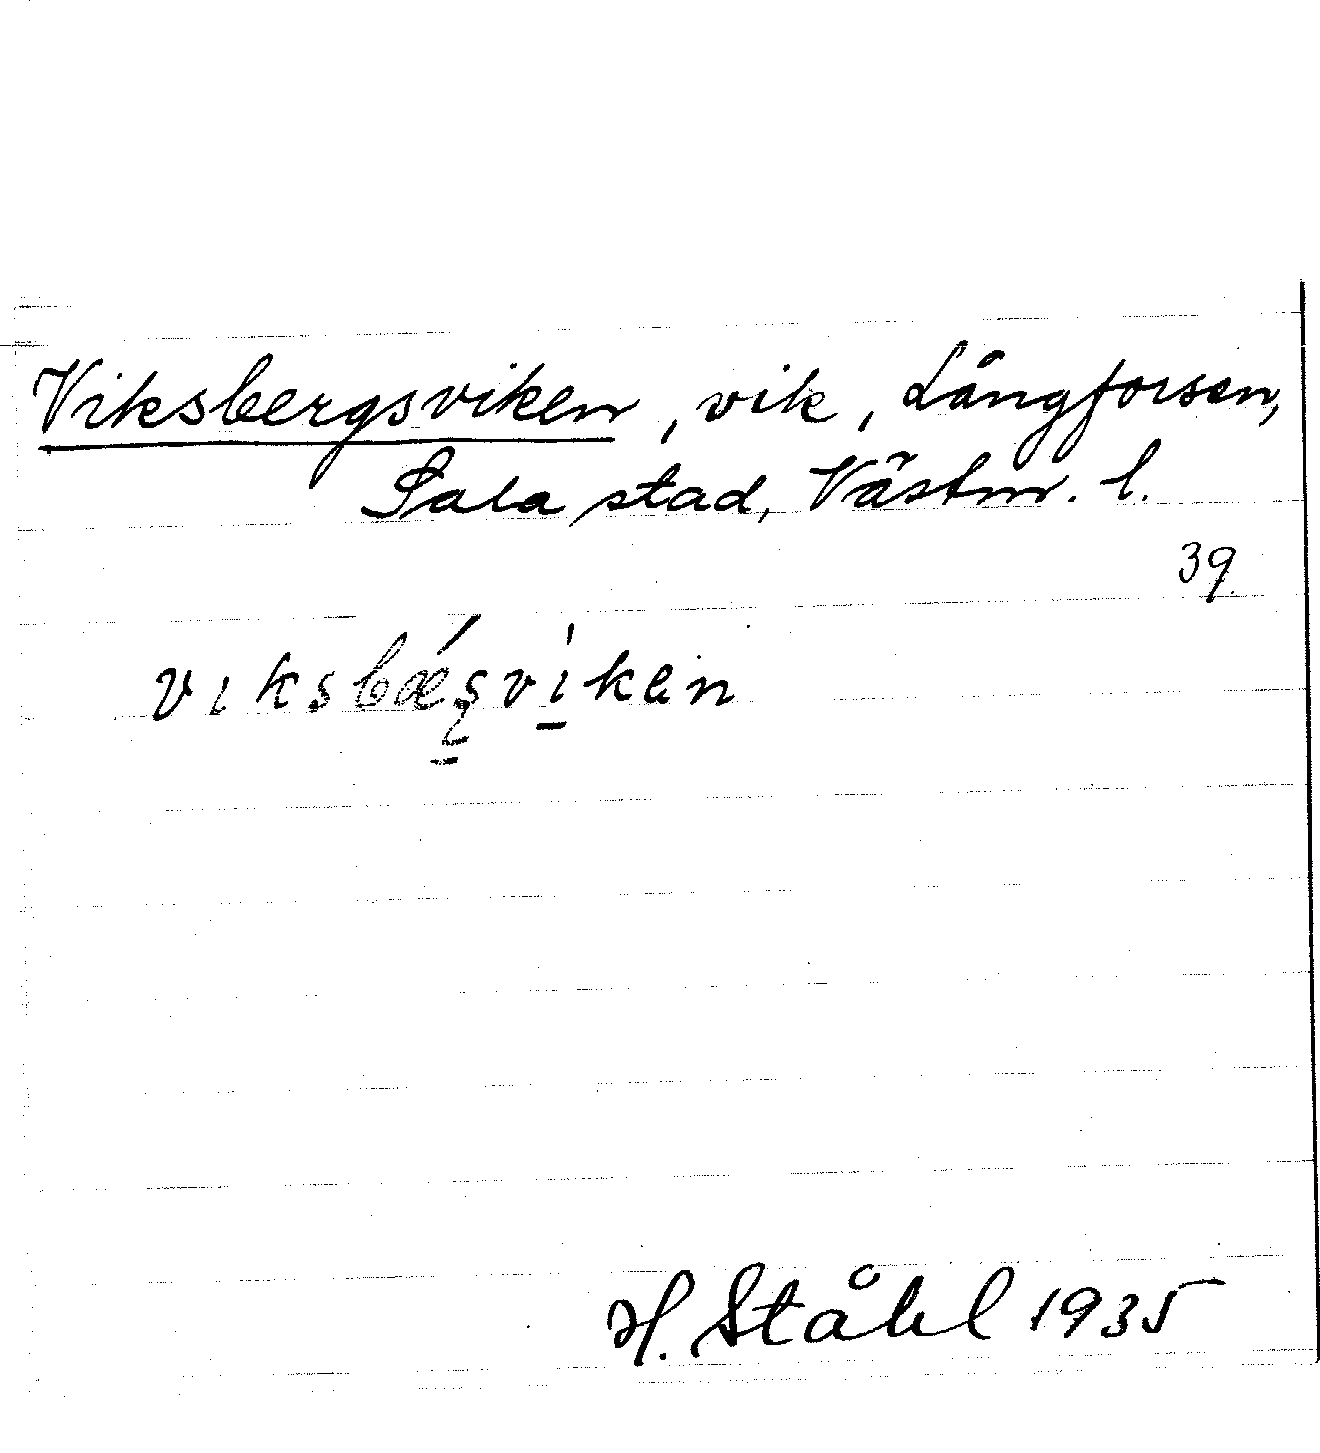 Viksbergsviken, vik, Långforsen,
Sala stad, Västm. l.
39.
viksbǽʂvìken
H. Ståhl 1935